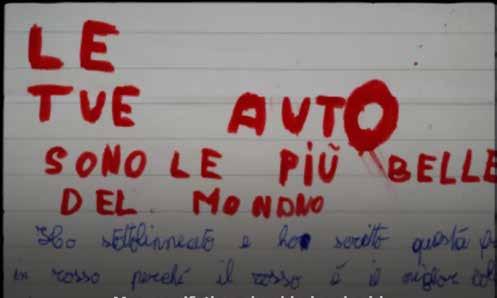 LE
TUE AUTO
SONO LE PIÙ BELLE
DEL MONDNO
Ho sottolinneato e ho scritto questa
in rosso perché il rosso è il miglior